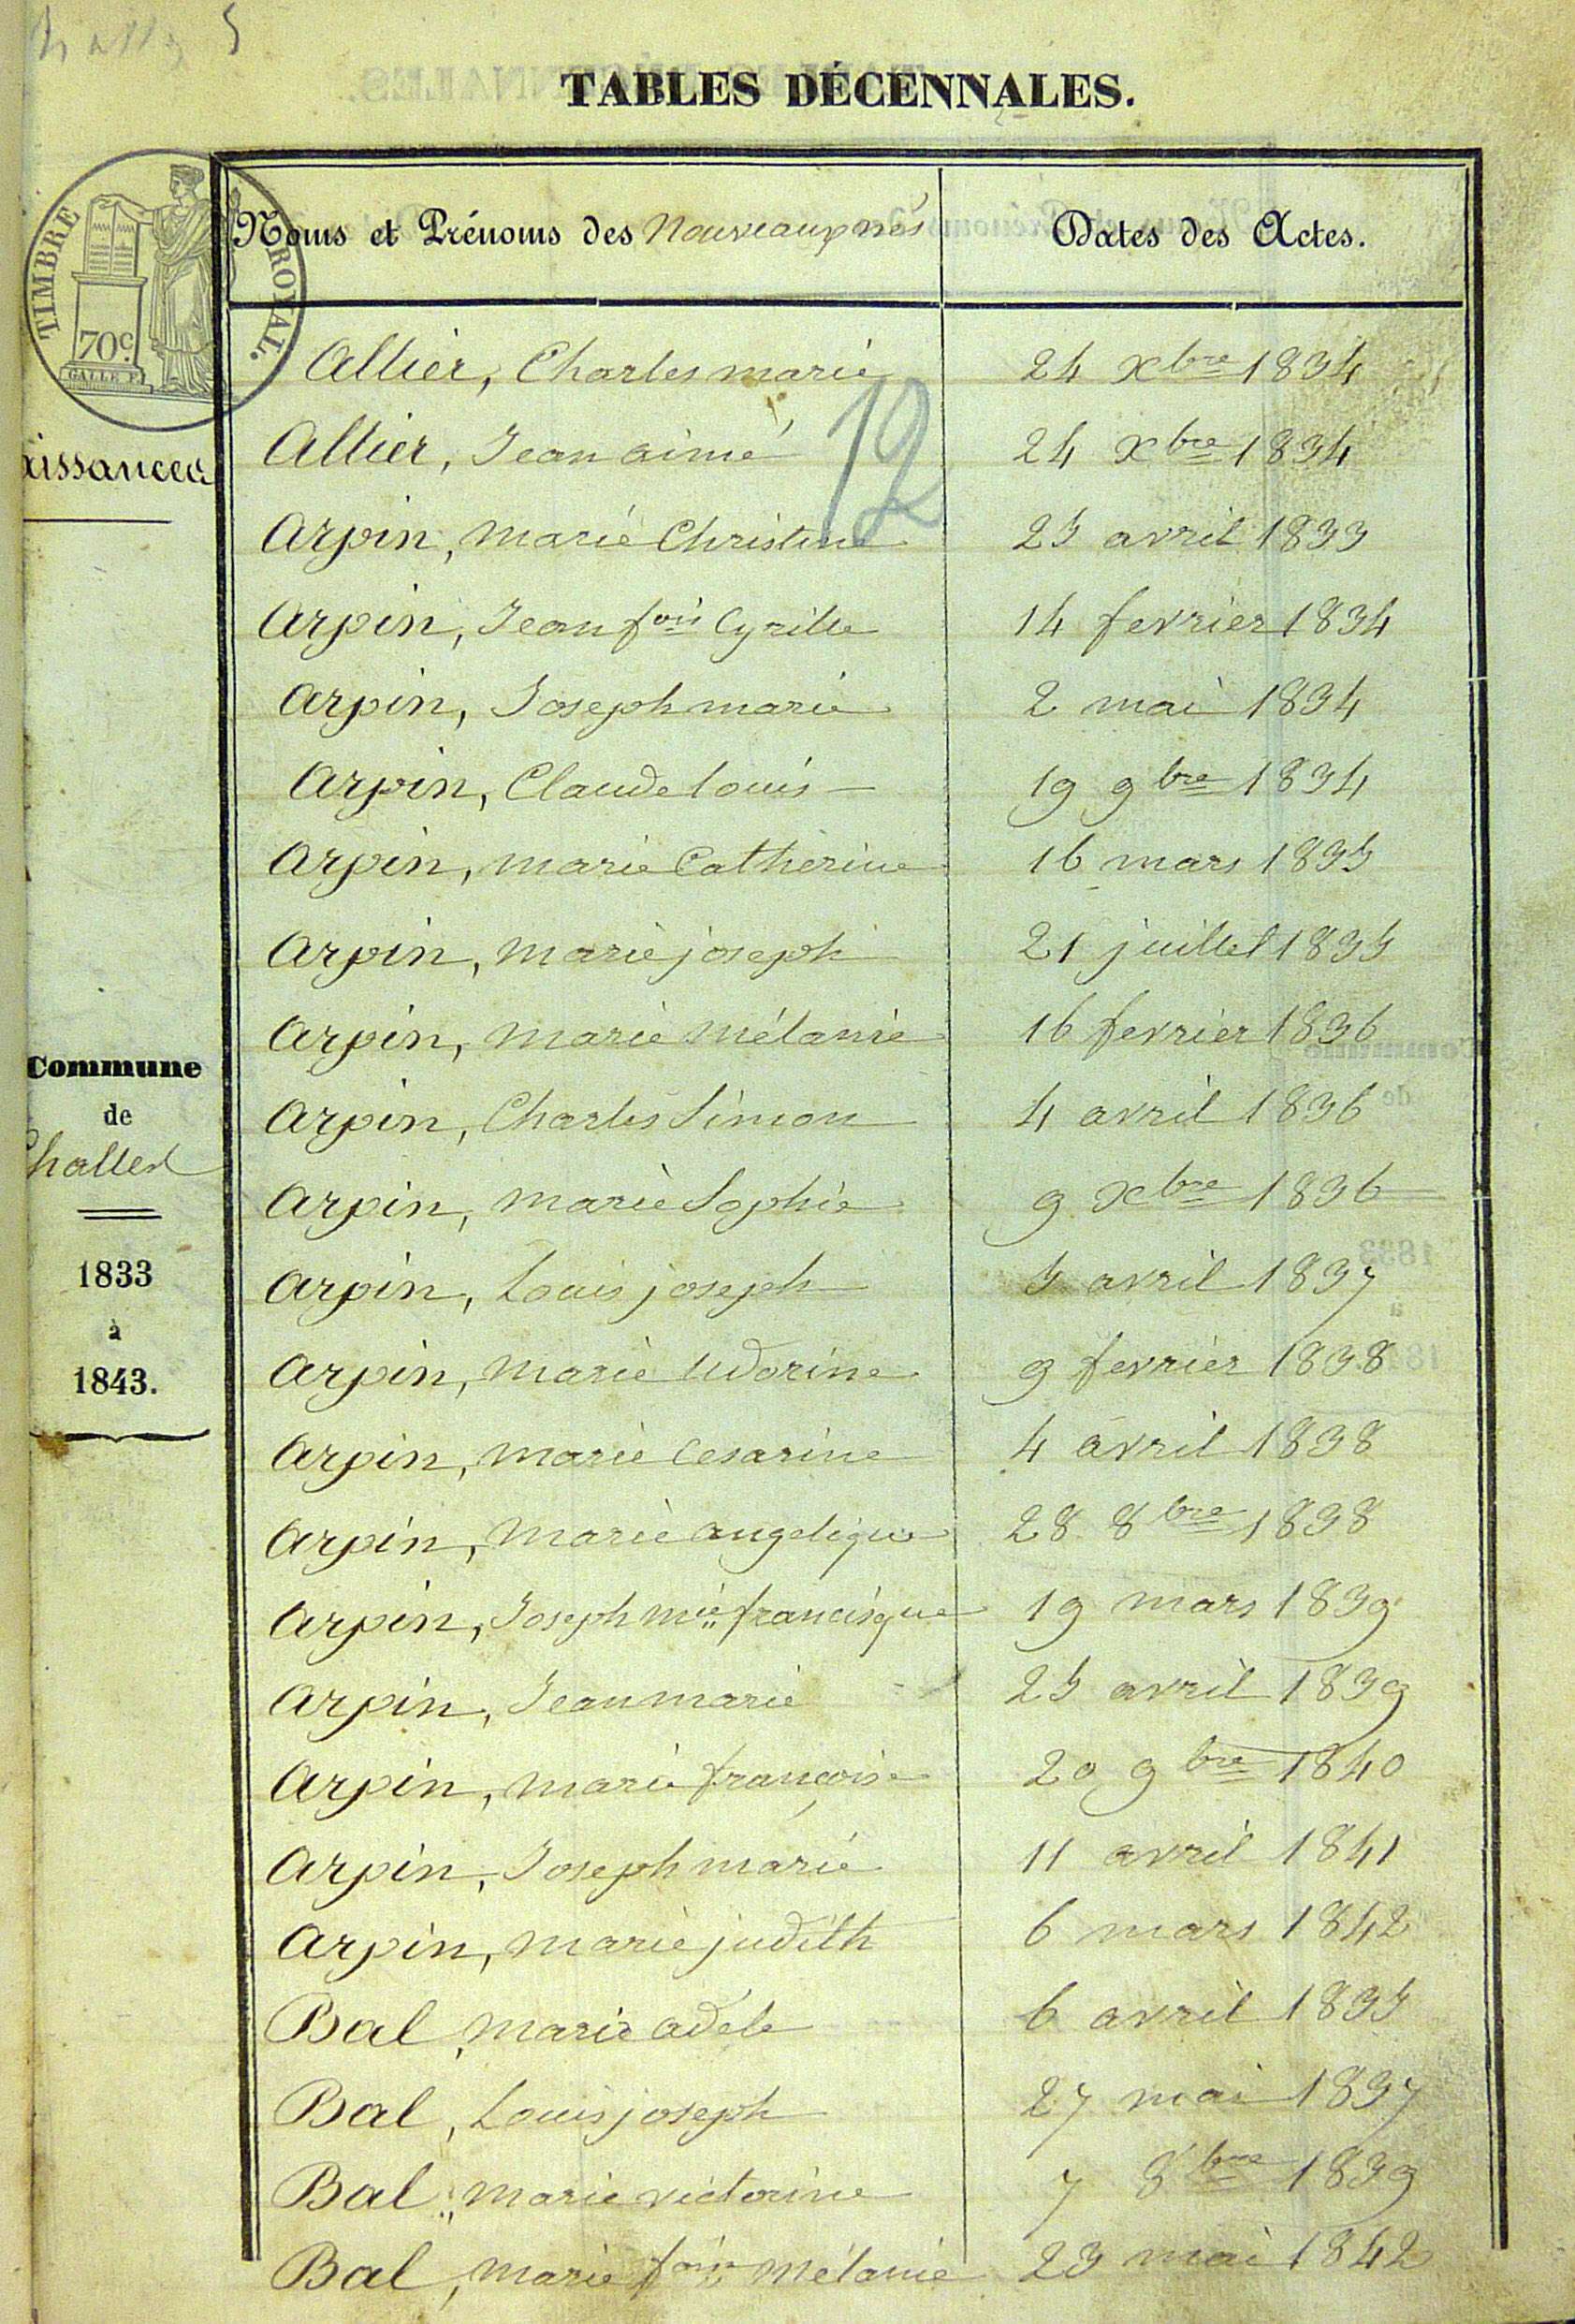 5
TABLES DÉCENNALES.
Noms et Prénoms des Nouveaux nés
Dates des Actes.
TIMBRE ROYAL.
70c.
GALLE F.
aissances
Commune
de
Challex
1833
à
1843.
12
Allier, Charles marie 24 Xbre 1834
Allier, Jean aimé 24 Xbre 1834
Arpin, marie Christine 25 avril 1833
Arpin, Jean fois Cyrille 14 fevrier 1834
Arpin, Joseph marie 2 mai 1834
Arpin, Claude louis 19 9bre 1834
Arpin, marie Catherine 16 mars 1835
Arpin, marie joseph 21 juillet 1835
Arpin, marie mélanie 16 fevrier 1836
Arpin, Charles Simon 4 avril 1836
Arpin, marie Sophie 9 Xbre 1836
Arpin, Louis joseph 5 avril 1837
Arpin, marie udorine 9 fevrier 1838
Arpin, marie Cesarine 4 avril 1838
Arpin, marie angelique 28 8bre 1838
Arpin, Joseph mie francisque 19 mars 1839
Arpin, Jean marie 25 avril 1839
Arpin, marie françoise 20 9bre 1840
Arpin, Joseph marie 11 avril 1841
Arpin, marie judith 6 mars 1842
Bal, marie adele 6 avril 1835
Bal, Louis joseph 27 mai 1837
Bal, marie victorine 7 8bre 1839
Bal, marie mélanie 23 mai 1842